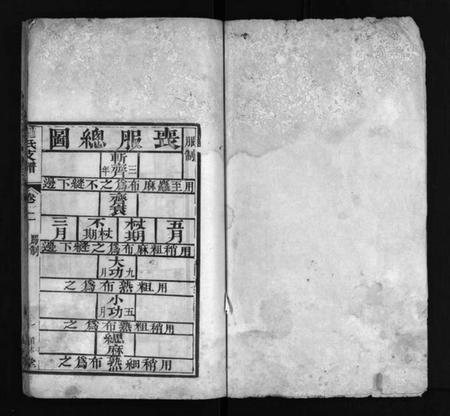 服制
喪服總圖
斬
三年
用至麤麻布爲之不縫下邊
齊衰
五月
杖期
不杖期
三月
用稍粗麻布爲之縫下邊
大功
九月
用粗熟布爲之
小功
五月
用稍粗熟布爲之
緦麻
用稍細熟布爲之
氏支譜
卷一
服制